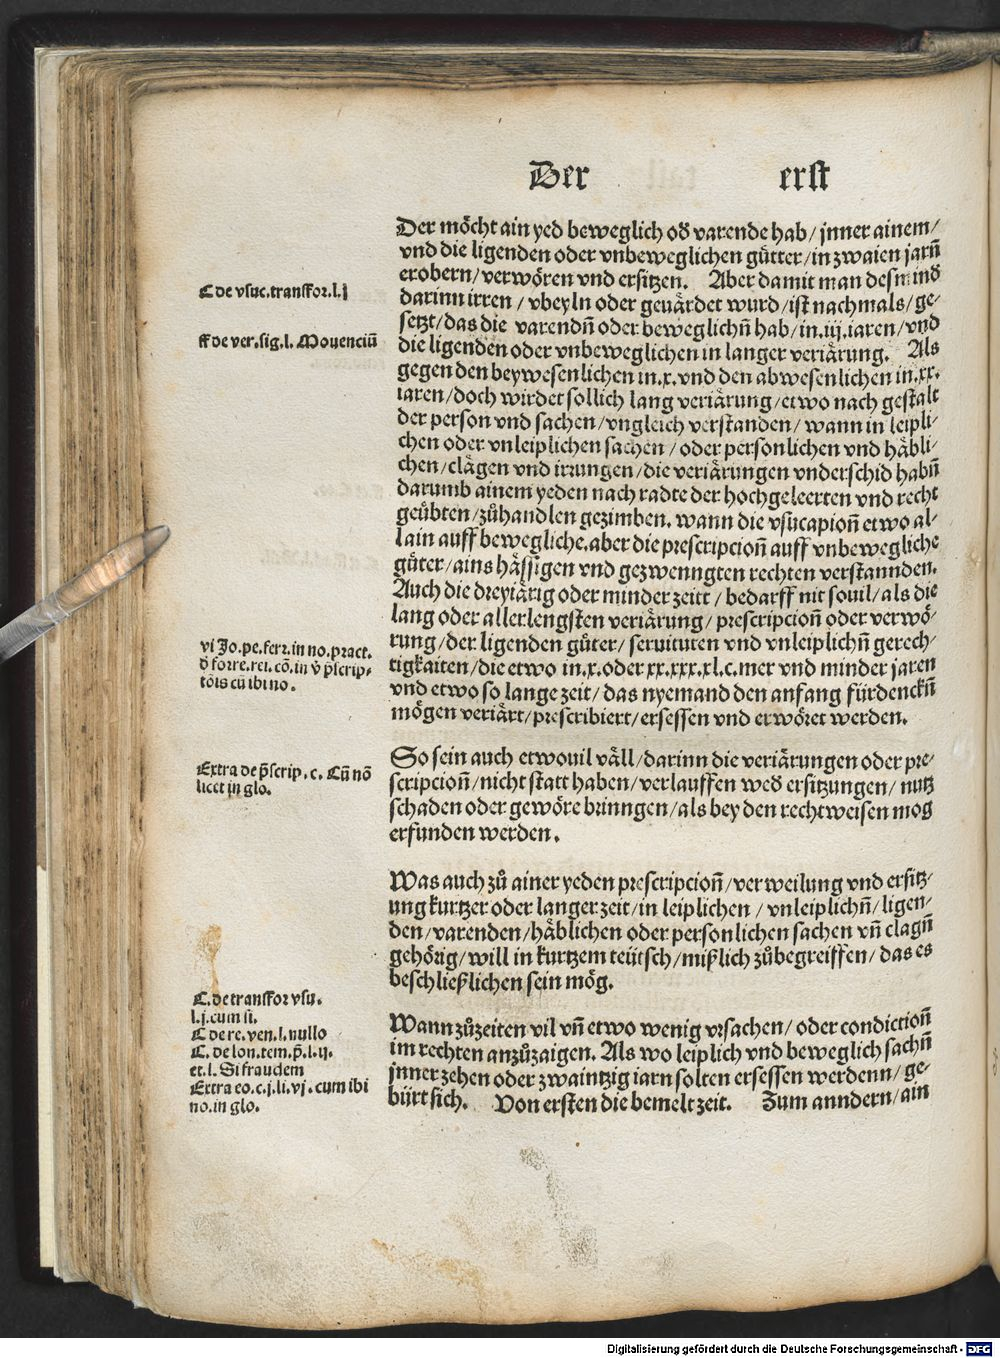 Der erst
Der möcht ain yed beweglich od̕ varende hab/ jnner ainem/
vnd die ligenden oder vnbeweglichen gütter/ in zwaien jarn̄
erobern/ verwören vnd ersitzen. Aber damit man desmind̕
darinn irren/ vbeyln oder geuärdet wurd/ ist nachmals/ ge-
setzt/ das die varendn̄ oder beweglichn̄ hab/ in .iij. iaren/ vnd
die ligenden oder vnbeweglichen in langer veriärung. Als
gegen den beywesenlichen in .x. vnd den abwesenlichen in .xx.
iaren/ doch wirdet sollich lang veriärung/ etwo nach gestalt
der person vnd sachen/ vngleich verstanden/ wann in leipli-
chen oder vnleiplichen sachen/ oder personlichen vnd häbli-
chen/ clägen vnd irrungen/ die veriärungen vnderschid habn̄
darumb ainem yeden nach radte der hochgeleerten vnd recht
geübten/ zůhandlen gezimben. wann die vsucapion̄ etwo al-
lain auff bewegliche. aber die prescripcion̄ auff vnbewegliche
güter/ ains hässigen vnd gezwenngten rechten verstannden.
Auch die dreyiärig oder minder zeitt/ bedarff nit souil/ als die
lang oder allerlengsten veriärung/ prescripcion̄ oder verwö-
rung/ der ligenden güter/ seruituten vnd vnleiplichn̄ gerech-
tigkaiten/ die etwo in .x. oder xx. xxx. xl. c. mer vnd minder jaren
vnd etwo so lange zeit/ das nyemand den anfang fürdenckn̄
mögen veriärt/ prescribiert/ ersessen vnd erwöret werden.
So sein auch etwouil väll/ darinn die veriärungen oder pre-
scripcion̄/ nicht statt haben/ verlauffen wed̕ ersitzungen/ nutz
schaden oder gewöre brinngen/ als bey den rechtweisen mög
erfunden werden.
Was auch zů ainer yeden prescripcion̄/ verweilung vnd ersitz-
ung kurtzer oder langer zeit/ in leiplichen/ vnleiplichn̄/ ligen-
den/ varenden/ häblichen oder personlichen sachen vn̄ clagn̄
gehörig/ will in kurtzem teütsch/ mißlich zůbegreiffen/ das es
beschließlichen sein mög.
Wann zůzeiten vil vn̄ etwo wenig vrsachen/ oder condiction̄
im rechten anzůzaigen. Als wo leiplich vnd beweglich sachn̄
jnner zehen oder zwaintzig iarn solten ersessen werdenn/ ge-
bürt sich. Von ersten die bemelt zeit. Zum anndern/ ain
C de vsuc. transfor. l. j
ff de ver. sig. l. Mouenciū
vi Jo. pe. ferr. in no. pract.
d̕ forre. rei. cō. in v̊ p̄scrip-
tōis cū ibi no.
Extra de p̄scrip. c. Cū nō
licet in glo.
C. de transfor vsu.
l. j. cum si.
C de re. ven. l. nullo
C. de lon. tem. p̄. l. ij.
et. l. Si fraudem
Extra eo. c. j. li. vj. cum ibi
no. in glo.
Digitalisierung gefördert durch die Deutsche Forschungsgemeinschaft - DFG